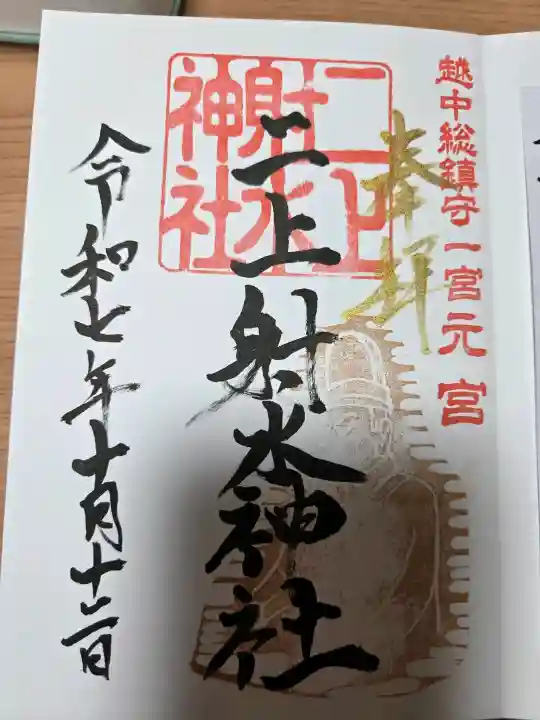 越中総鎮守一宮元宮
奉拝
二上射水神社
二上射水神社
令和七年十月十二日